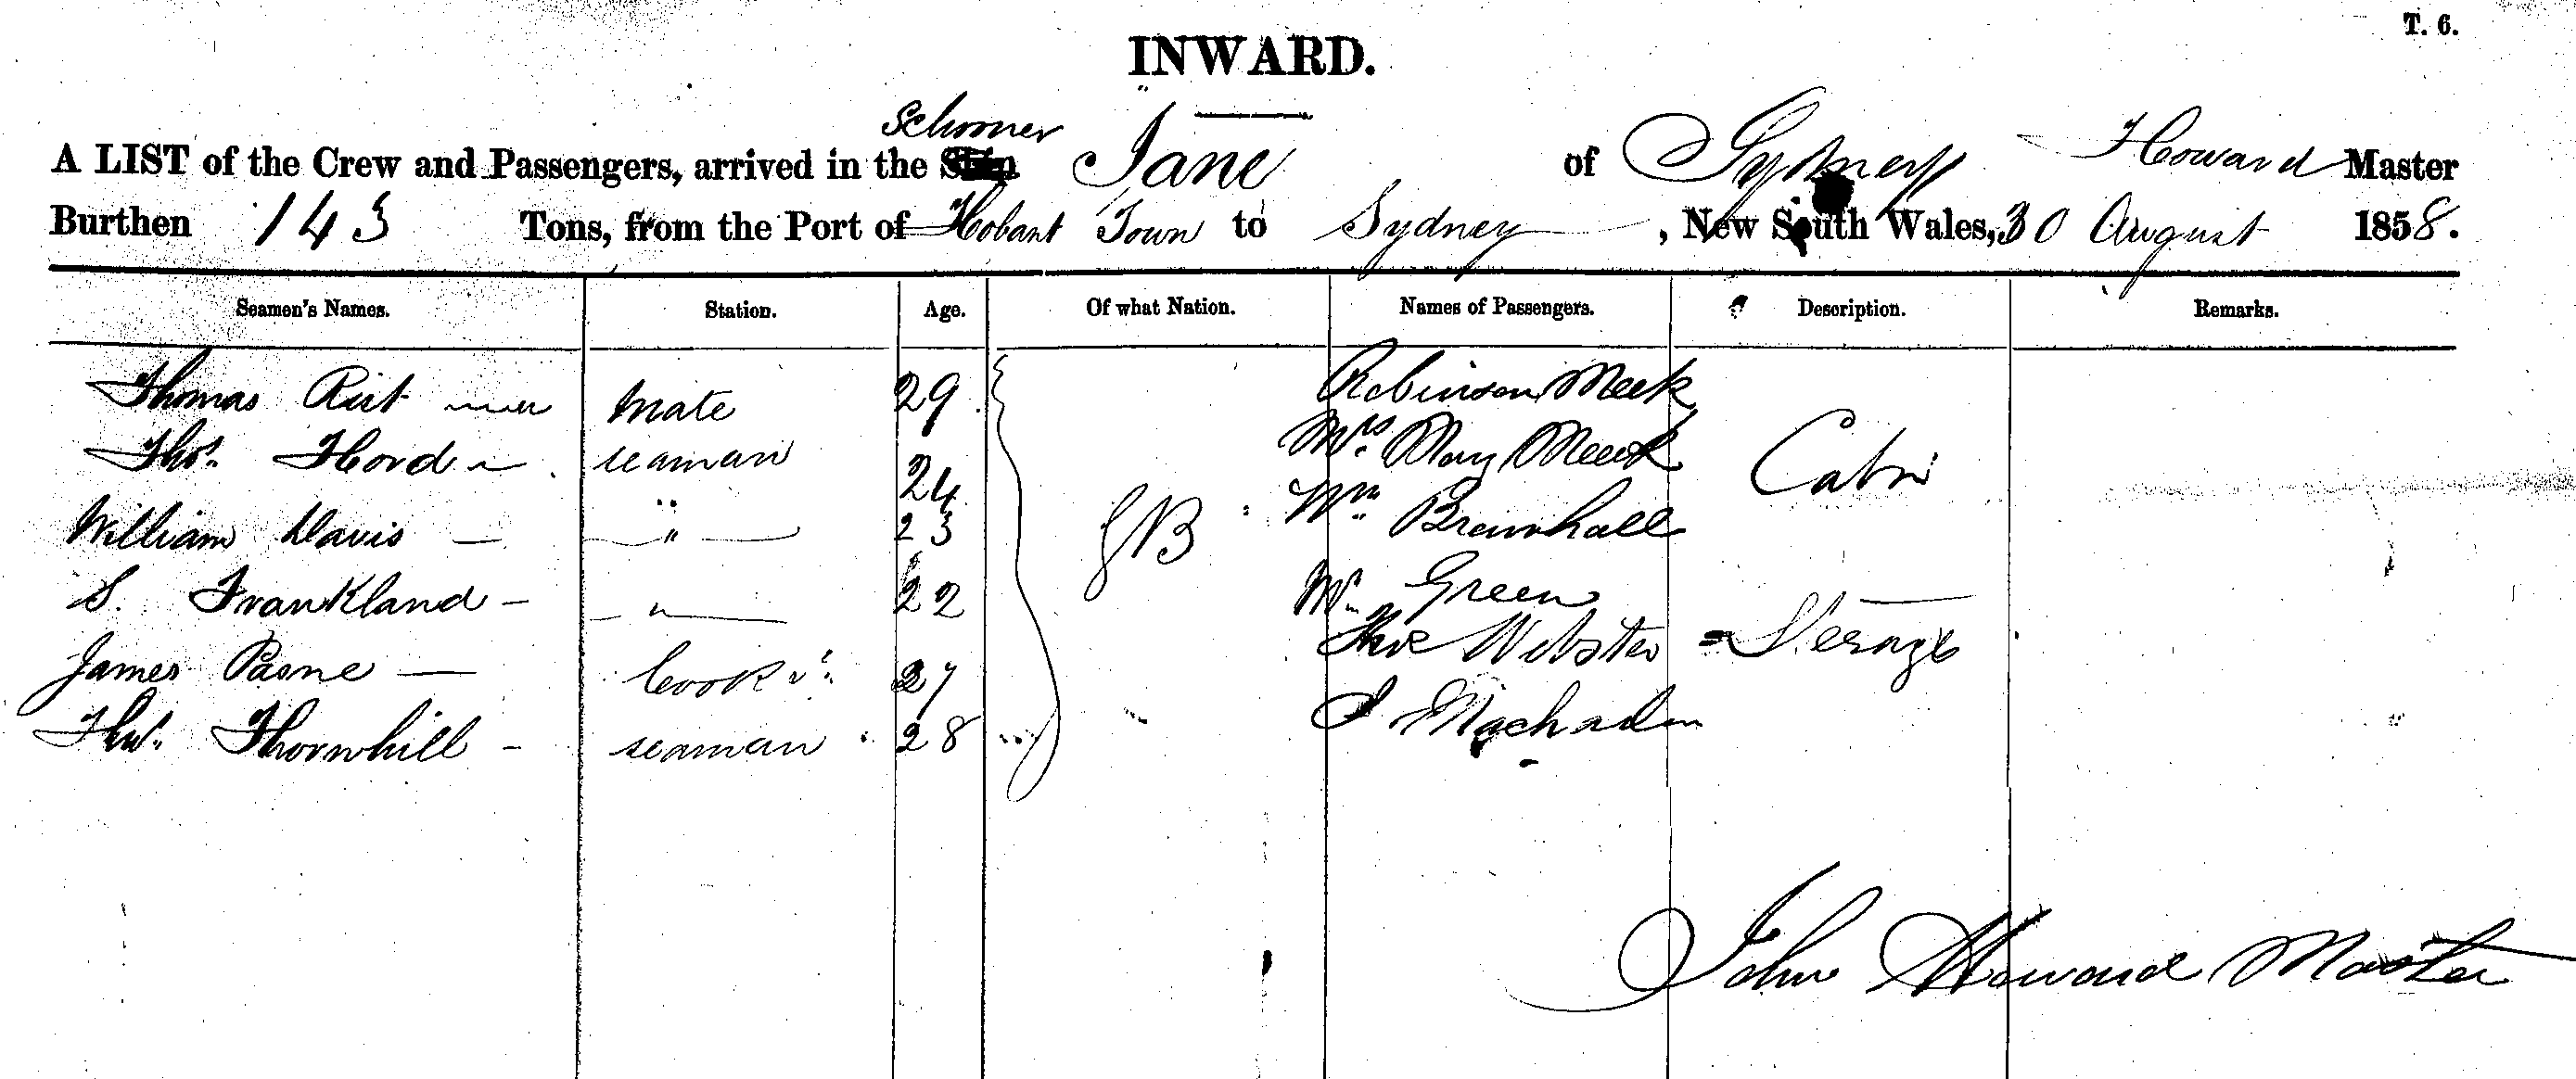 T. 6.
INWARD.
Schooner
A LIST of the Crew and Passengers, arrived in the Ship Jane of Sydney Howard Master
Burthen 143 Tons, from the Port of Hobart Town to Sydney, New South Wales, 30 August 1858.
Seamen's Names. Station. Age. Of what Nation. Names of Passengers. Description. Remarks.
Thomas Mate 29 Robinson Meek
Thos. Hord seaman 24 Mrs. May Meek Cabin
William Davis " 23 GB Wm. Bramhall
S. Frankland " 22 Mr. Green
James Cook 27 Webster Sterage
Thos. Thornhill seaman 28
John Howard Master